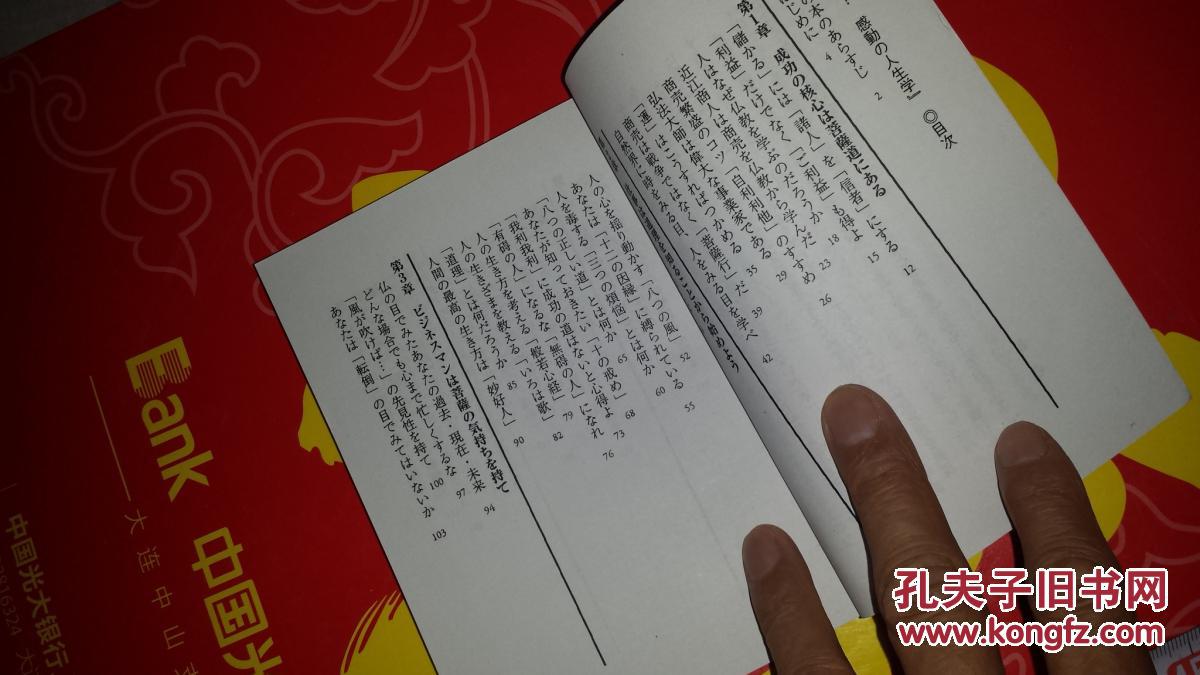 感動の人生学』◎目次
の本のあらすじ 2
はじめに 4
第1章 成功の核心は菩薩道にある
「儲かる」には「諸人」を「信者」にする 12
「利益」だけでなく「ご利益」も得よ 15
人はなぜ仏教を学ぶのだろうか 18
近江商人は商売を仏教から学んだ 23
商売繁盛のコツ「自利利他」のすすめ 26
弘法大師は偉大な事業家である 29
「運」はこうすればつかめる 35
商売は戦争ではなく「菩薩行」だ 39
自然界に時をみる目、人をみる目を学べ 42
を知ることから始めよう
人の心を揺り動かす「八つの風」 52
あなたは「十二の因縁」に縛られている 55
人を毒する「三つの煩悩」とは何か 60
「八つの正しい道」とは何か 65
あなたが知っておきたい「十の戒め」 68
「我利我利」に成功の道はないと心得よ 73
「有碍の人」になるな「無碍の人」になれ 76
人の生き方を考える「般若心経」 79
人の生きざまを教える「いろは歌」 82
「道理」とは何だろうか 85
人間の最高の生き方は「妙好人」 90
第3章 ビジネスマンは菩薩の気持ちを持て
仏の目でみたあなたの過去・現在・未来 94
どんな場合でも心まで忙しくするな 97
「風が吹けば…」の先見性を持て 100
あなたは「転倒」の目でみてはいないか 103
Bank
大连中山
中国光大
中国光大银行
2816324
孔夫子旧书网
www.kongfz.com